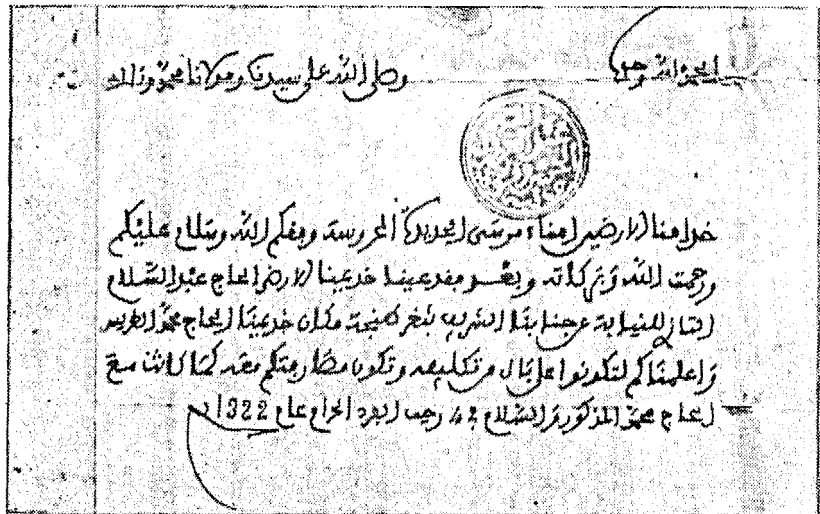 الحمد لله وحده وصلى الله على سيدنا ومولانا محمد وآله
خدامنا الأرضين أمناء مرسى الجديدة المحروسة وفقكم الله وسلام عليكم
ورحمت الله وبركاته وبعد فقد عينا خديمنا الأرضى الحاج عبد السلام
التازي للنيابة عن جنابنا الشريف بثغر طنجة مكان خديمنا الحاج محمد الطريس
وأعلمناكم لتكونوا على بال من تكليفه وتكون مفاوضتكم معه كما كانت مع
الحاج محمد المذكور والسلام في رجب الفرد الحرام عام 1322